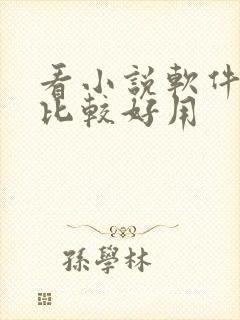 看小說軟件
比較好用
孫學林